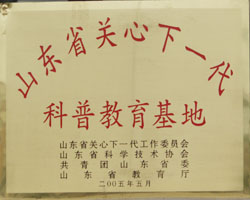 山东省关心下一代
科普教育基地
山东省关心下一代工作委员会
山东省科学技术协会
共青团山东省委
山东省教育厅
二00五年五月